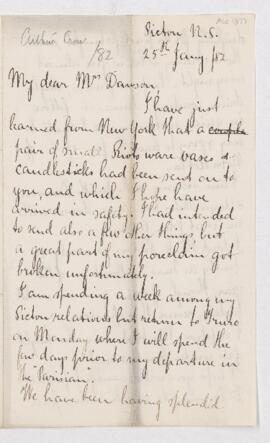 Arthur Crowe
/82
Pictou N.S.
25th Jany /82
My dear Mrs Dawson
I have just
learned from New York that a couple
pair of small ware vases &
candlesticks had been sent on to
you, and which I hope have
arrived in safety. I had intended
to send also a few other things, but
a great part of my porcelain got
broken unfortunately.
I am spending a week among my
Pictou relations but return to Truro
on Monday where I will spend the
few days prior to my departure in
the "Parisian".
We have been having splendid